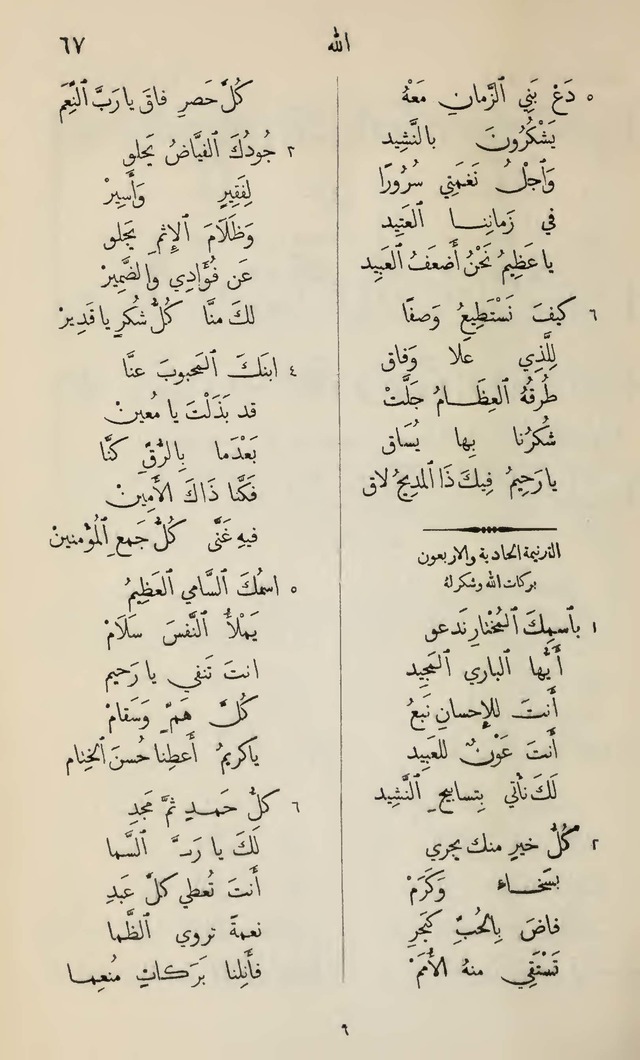 الله
٦٧
٥ دَعْ بَنِي ٱلزَّمانِ مَعْهُ
يَشْكُرُونَ بالنَّشِيد
وَٱجْلُ نَغمَتِي سُرُورًا
في زَمانِنا العَتِيد
يا عَظِيمُ نَحْنُ أَضعَفُ ٱلعَبِيد
٦ كيفَ نَسْتَطِيعُ وَصفًا
لِلَّذِي علا وَفاق
طُرقُهُ ٱلعِظَامُ جَلَّتْ
شُكرُنا بِها يُسَاق
يا رَحِيمُ فِيكَ ذَا ٱلمدِيحُ لاق
الترنيمة الحادية والاربعون
بركات الله وشكر له
١ بِٱسمِكَ ٱلمُختارِ نَدعو
أَيُّها ٱلباري ٱلمَجِيد
أَنتَ للإِحسانِ نَبعُ
أَنتَ عَوْنٌ للعَبِيد
لَكَ نأتي بِتسابيحِ ٱلنَّشِيد
٢ كُلُّ خيرٍ منك يجري
بسَخاءٍ وَكَرَمْ
فاضَ بِالحُبِّ كبَحرِ
تَسْتَقِي منهُ الأُمَمْ
كُلَّ حَصرٍ فاقَ يا رَبَّ ٱلنِّعَم
٣ جُودُكَ ٱلفيَّاضُ يَحلو
لِفَقِيرٍ وَأَسِيرْ
وَظَلَامَ ٱلإِثمِ يجلو
عَن فُؤَادِي والضَّمِيرْ
لكَ منَّا كُلُّ شُكرٍ يا قَدِيرْ
٤ ابنَكَ ٱلمَحبوبَ عنَّا
قد بَذَلْتَ يا مُعينْ
بَعْدَما بِالرِّقِّ كنَّا
فَكَّنا ذَاكَ ٱلأَمِينْ
فيهِ غَنَّى كُلُّ جَمعِ ٱلمُؤْمنينْ
٥ اسمُكَ ٱلسَّامي ٱلعَظِيمُ
يَملأُ ٱلنَّفسَ سَلَامْ
انتَ تَنفي يا رَحيم
كُلَّ هَمٍّ وَسَقامْ
يا كَرِيمُ أَعطِنا حُسنَ ٱلخِتام
٦ كلُّ حَمدٍ ثُمَّ مَجدِ
لَكَ يا رَبَّ ٱلسَّما
أَنتَ تُعطي كلَّ عَبدِ
نعمةً تروي ٱلظَّما
فأَنِلنا بَرَكاتٍ مُنعِما
٩